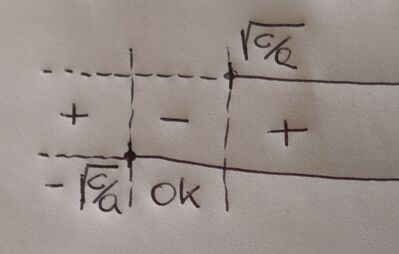 √c/a
+ - +
- √c/a OK